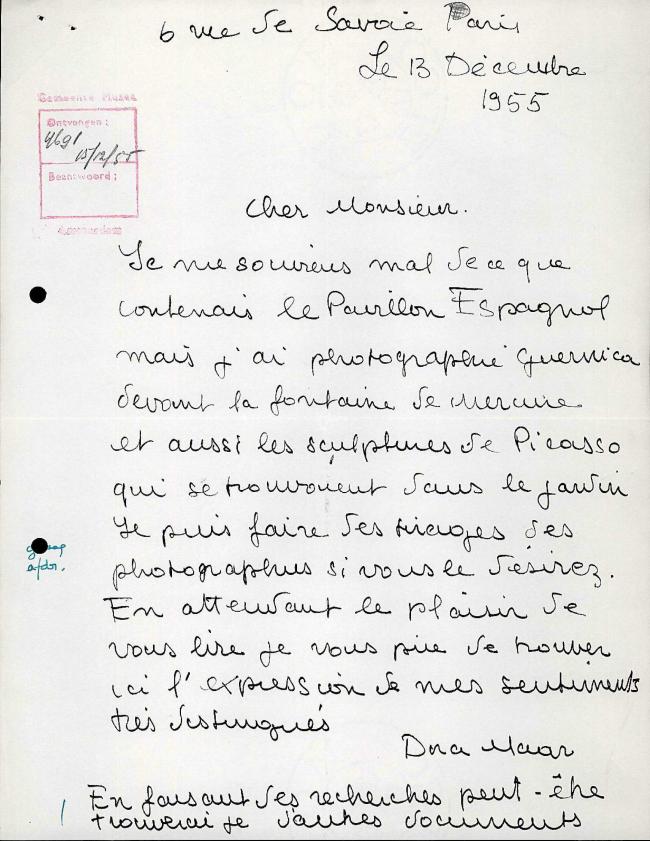 6 rue de Savoie Paris
Le 13 Décembre
1955
Gemeente Musea
Ontvangen:
4691
15/12/55
Beantwoord:
Amsterdam
Cher Monsieur.
Je me souviens mal de ce que
contenais le Pavillon Espagnol
mais j'ai photographié Guernica
devant la fontaine de Mercure
et aussi les sculptures de Picasso
qui se trouvaient dans le jardin
Je puis faire des tirages des
photographies si vous le désirez.
En attendant le plaisir de
vous lire je vous prie de trouver
ici l'expression de mes sentiments
très distingués
Dora Maar
En faisant des recherches peut-être
trouverai je d'autres documents